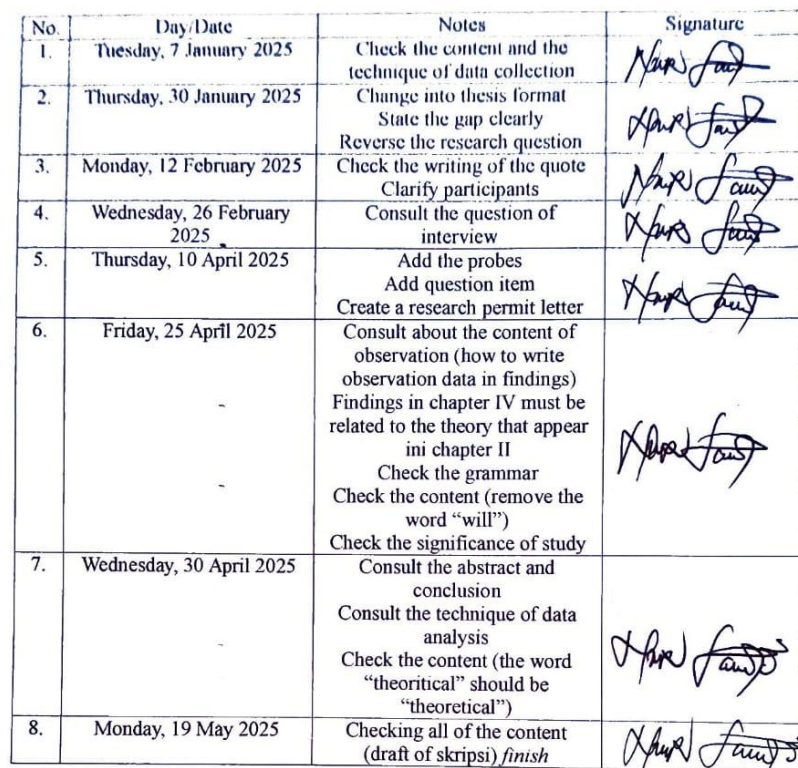 No. Day/Date Notes Signature
1. Tuesday, 7 January 2025 Check the content and the
technique of data collection
2. Thursday, 30 January 2025 Change into thesis format
State the gap clearly
Reverse the research question
3. Monday, 12 February 2025 Check the writing of the quote
Clarify participants
4. Wednesday, 26 February Consult the question of
2025 interview
5. Thursday, 10 April 2025 Add the probes
Add question item
Create a research permit letter
6. Friday, 25 April 2025 Consult about the content of
observation (how to write
observation data in findings)
Findings in chapter IV must be
related to the theory that appear
ini chapter II
Check the grammar
Check the content (remove the
word “will”)
Check the significance of study
7. Wednesday, 30 April 2025 Consult the abstract and
conclusion
Consult the technique of data
analysis
Check the content (the word
“theoritical” should be
“theoretical”)
8. Monday, 19 May 2025 Checking all of the content
(draft of skripsi) finish